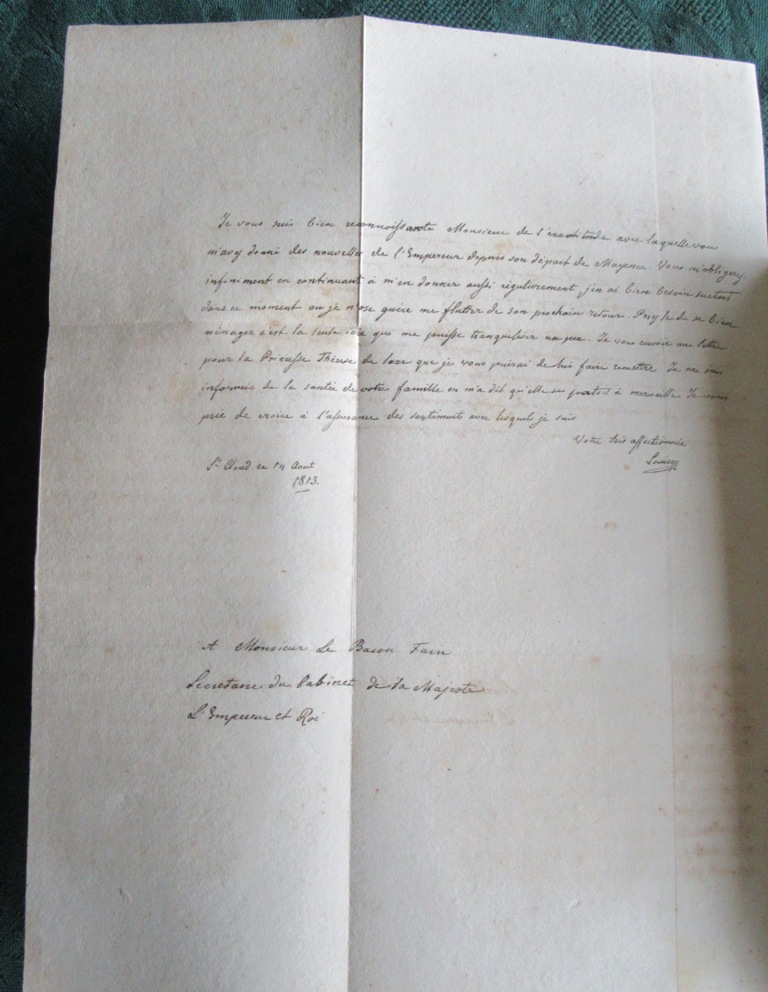 Je vous suis bien reconnoissante Monsieur de l'exactitude avec laquelle vous
m'avez donné des nouvelles de l'Empereur depuis son départ de Mayence. Vous m'obligerez
infiniment en continuant à m'en donner aussi régulierement, j'en ai bien besoin surtout
dans ce moment ou je n'ose guère me flatter de son prochain retour. le de se bien
ménager c'est la seule idée que me puisse tranquiliser un peu. Je vous envoie une lettre
pour la Princesse Thérese de Saxe que je vous prierai de lui faire remettre. Je me suis
informée de la santée de votre famille on m'a dit qu'elle se portoit à merveille. Je vous
prie de croire à l'assurance des sentiments avec lesquels je suis
Votre très affectionnée
Louise
St Cloud ce 14 Aout
1813.
A Monsieur Le Baron Fain
Secretaire du Cabinet de Sa Majeste
L'Empereur et Roi